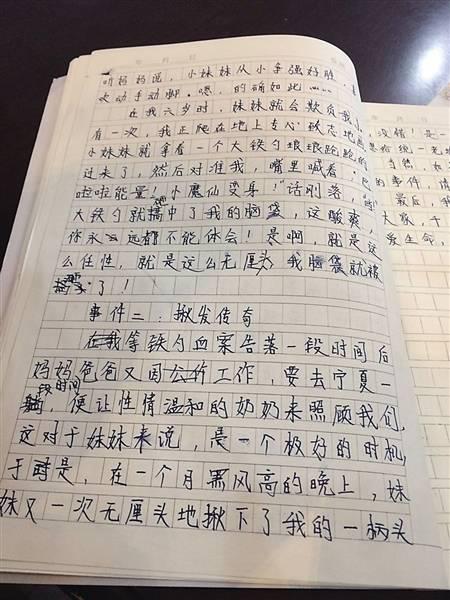 听妈妈说，小妹妹从小争强好胜，喜
欢动手动脚。嗯，的确如此……
在我六岁时，妹妹就会欺负我
有一次，我正爬在地上专心致志地画
小妹妹就拿着一个大铁勺踉踉跄跄的
过来了，然后对准我，嘴里喊着：巴
啦啦能量！小魔仙变身！”话刚落，
大铁勺就搞中了我的脑袋，这酸爽，
你永远都不能体会！是啊，就是这
么任性，就是这么无厘头，我脑袋就被
了！
事件二：揪发传奇
在我等铁勺血案告落一段时间后
妈妈爸爸又因工作，要去宁夏一
段时间，便让性情温和的奶奶来照顾我们，
这对于妹妹来说，是一个极好的时机，
于是，在一个月黑风高的晚上，妹
妹又一次无厘头地揪下了我的一柄头
没错！是一
当然，如
的事件，
最后，我
大家，千
爱生命，